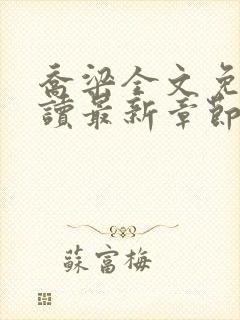 喬梁全文免
讀最新章節
蘇富梅